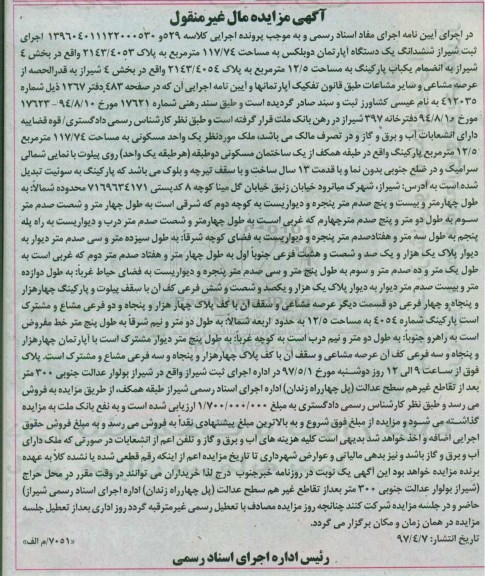 آگهی مزایده مال غیر منقول
در اجرای آیین نامه اجرای مفاد اسناد رسمی و به موجب پرونده اجرایی کلاسه ۲۹و ۱۳۹۶۰۴۰۱۱۱۲۲۰۰۰۵۳۰ اجرای
ثبت شیراز ششدانگ یک دستگاه آپارتمان دوبلکس به مساحت ۱۱۷/۷۴ مترمربع به پلاک ۲۱۴۳/۴۰۵۳ واقع در بخش ۴
شیراز به انضمام یکباب پارکینگ به مساحت ۱۲/۵ مترمربع به پلاک ۲۱۴۳/۴۰۵۴ واقع در بخش ۴ شیراز به قدرالحصه از
عرصه مشاعی و سایر مشاعات طبق قانون تفکیک آپارتمانها و آیین نامه اجرایی آن که در صفحه ۴۸۳ دفتر ۱۲۶۷ ذیل شماره
۴۱۲۰۳۵ به نام عیسی کشاورز ثبت و سند صادر گردیده است و طبق سند رهنی شماره ۱۷۶۲۱ مورخ ۹۴/۸/۱۰ - ۱۷۶۲۳
مورخ ۹۴/۸/۱۰ دفترخانه ۳۹۷ شیراز در رهن بانک ملت قرار گرفته است و طبق نظر کارشناس رسمی دادگستری/ قوه قضاییه
دارای انشعابات آب و برق و گاز و در تصرف مالک می باشد، ملک موردنظر یک واحد مسکونی به مساحت ۱۱۷/۷۴ مترمربع
۱۲/۵ مترمربع پارکینگ واقع در طبقه همکف از یک ساختمان مسکونی دوطبقه (هرطبقه یک واحد) روی پیلوت با نمایی شمالی
سرامیک و در ضلع جنوبی بدون نما و با قدمت ۱۳ سال ساخت و با سقف تیرچه و بلوک می باشد که پارکینگ به سوئیت تبدیل
شده است به آدرس: شیراز، شهرک میانرود خیابان زنبق خیابان گل مینا کوچه ۸ کدپستی ۷۱۶۹۶۳۴۱۷۱ محدوده شمالا: به
طول چهارمتر و بیست و پنج صدم متر پنجره و دیواریست به کوچه دوم که شرقی است به طول چهار متر و شصت صدم متر
سوم به طول دو متر و پنج صدم مترچهارم که غربی است به طول چهارمتر و شصت صدم متر درب و دیواریست به راه پله
پنجم به طول سه متر و هفتادصدم متر پنجره و دیواریست به فضای کوچه شرقا: به طول سیزده متر و سی صدم متر دیوار به
دیوار پلاک یک هزار و یک صد و شصت و هشت فرعی جنوبا اول به طول چهار متر و هفتاد صدم متر دوم که غربی است به
طول یک متر و ده صدم متر و سوم به طول پنج متر و سی صدم متر پنجره و دیواریست به فضای حیاط غربا: به طول دوازده
متر و بیست صدم متر دیوار به دیوار پلاک یک هزار و یکصد و شصت و شش فرعی کف آن با سقف پیلوت و پارکینگ چهارهزار
و پنجاه و چهار فرعی دو قسمت دیگر عرصه مشاعی و سقف آن با کف پلاک چهار هزار و پنجاه و دو فرعی مشاع و مشترک
است پارکینگ شماره ۴۰۵۴ به مساحت ۱۲/۵ به حدود اربعه شمالا: به طول دو متر و نیم شرقا به طول پنج متر خط مفروض
است به راهرو جنوبا: به طول دو متر و نیم درب است به کوچه غربا: به طول پنج متر دیوار مشترک است با آپارتمان چهارهزار
و پنجاه و سه فرعی کف آن عرصه مشاعی و سقف آن با کف پلاک چهارهزار و پنجاه و سه فرعی مشاع و مشترک است. پلاک
فوق از ساعت ۹ الی ۱۲ روز دوشنبه مورخ ۹۷/۵/۱ در اداره اجرای ثبت شیراز واقع در شیراز بولوار عدالت جنوبی ۳۰۰ متر
بعد از تقاطع غیرهم سطح عدالت (پل چهارراه زندان) اداره اجرای اسناد رسمی شیراز طبقه همکف، از طریق مزایده به فروش
می رسد و طبق نظر کارشناس رسمی دادگستری به مبلغ ۱/۷۰۰/۰۰۰/۰۰۰ ارزیابی شده است و به نفع بانک ملت به مزایده
گذاشته می شود و مزایده از مبلغ فوق شروع و به بالاترین مبلغ پیشنهادی نقدا به فروش می رسد و به مبلغ فروش حقوق
اجرایی اضافه و اخذ خواهد شد بدیهی است کلیه هزینه های آب و برق و گاز و تلفن اعم از انشعابات در صورتی که ملک دارای
آب و برق و گاز باشد و نیز بدهی مالیاتی و عوارض شهرداری تا تاریخ مزایده اعم از اینکه رقم قطعی شده یا نشده کلا به عهده
برنده مزایده خواهد بود این آگهی یک نوبت در روزنامه خبرجنوب درج لذا خریداران می توانند در وقت مقرر در محل حراج
(شیراز بولوار عدالت جنوبی ۳۰۰ متر بعداز تقاطع غیر هم سطح عدالت (پل چهارراه زندان) اداره اجرای اسناد رسمی شیراز)
حاضر و در جلسه مزایده شرکت کنند چنانچه روز مزایده مصادف با تعطیل رسمی غیرمترقبه گردد روز اداری بعداز تعطیل جلسه
مزایده در همان زمان و مکان برگزار می گردد.
تاریخ انتشار: ۹۷/۴/۷ «۷۰۵۱/م الف»
رئیس اداره اجرای اسناد رسمی